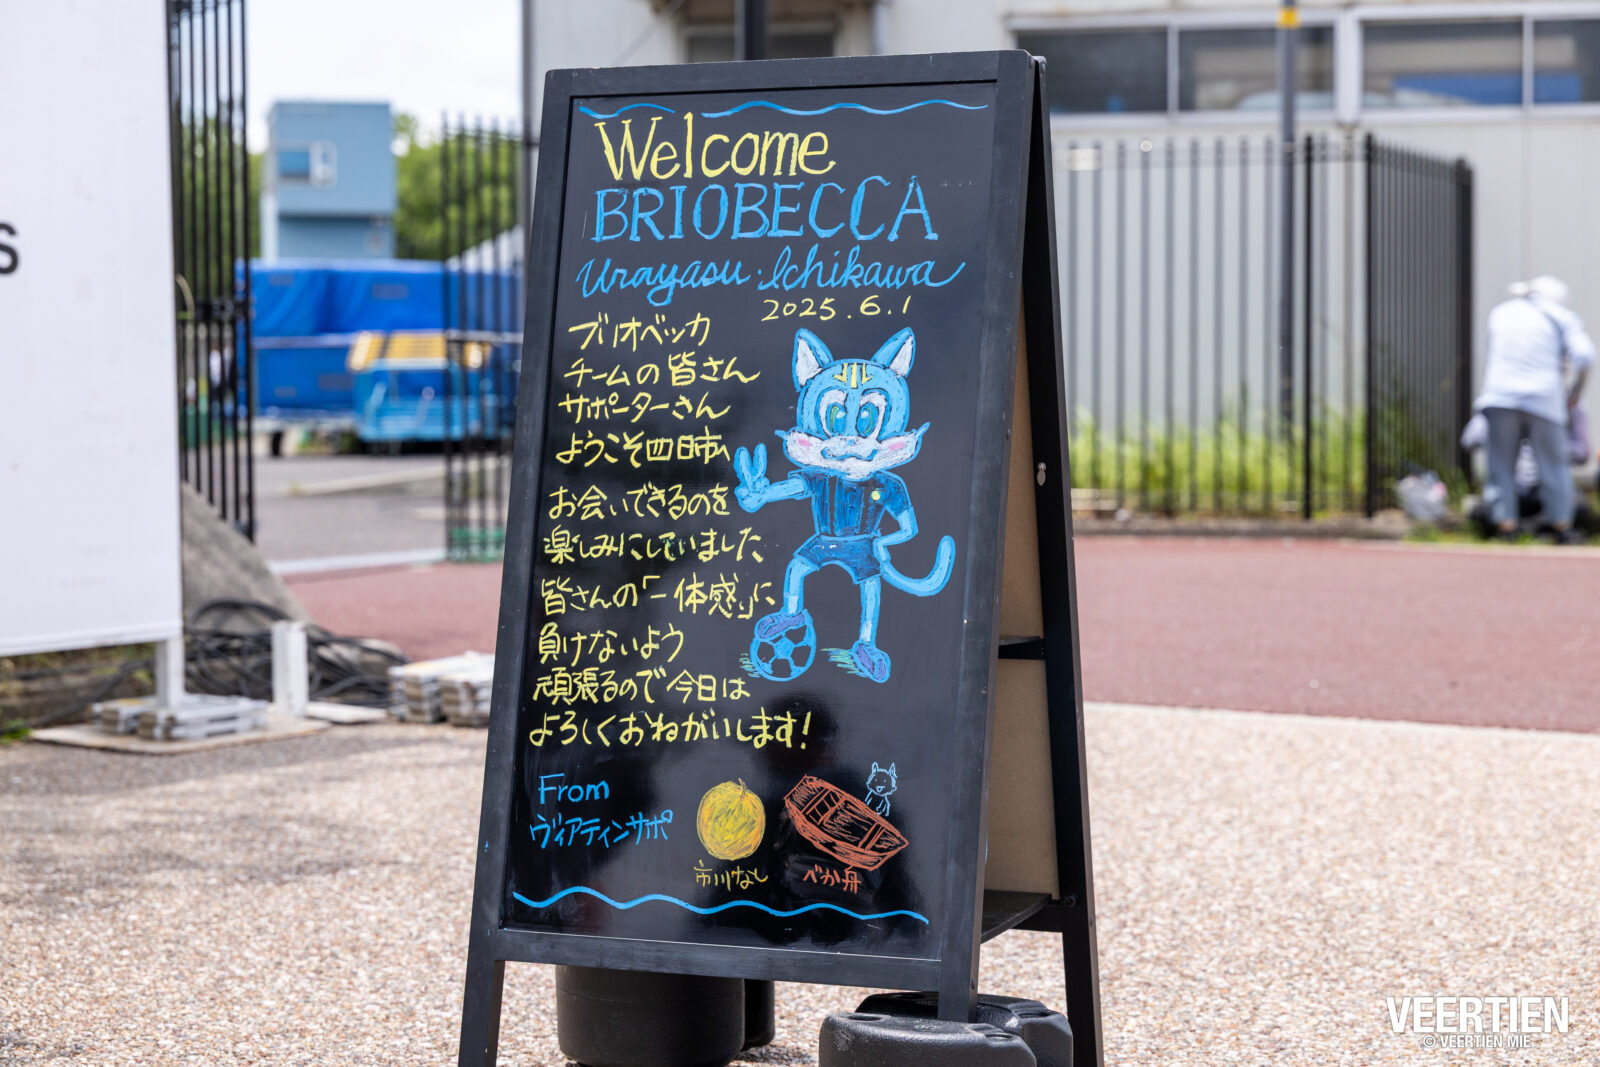 Welcome
BRIOBECCA
Urayasu・Ichikawa
2025.6.1
ブリオベッカ
チームの皆さん
サポーターさん
ようこそ四日市へ
お会いできるのを
楽しみにしていました
皆さんの「一体感」に
負けないよう
頑張るので今日は
よろしくおねがいします!
From
ヴィアティンサポ
市川なし
べか舟
S
VEERTIEN
© VEERTIEN MIE